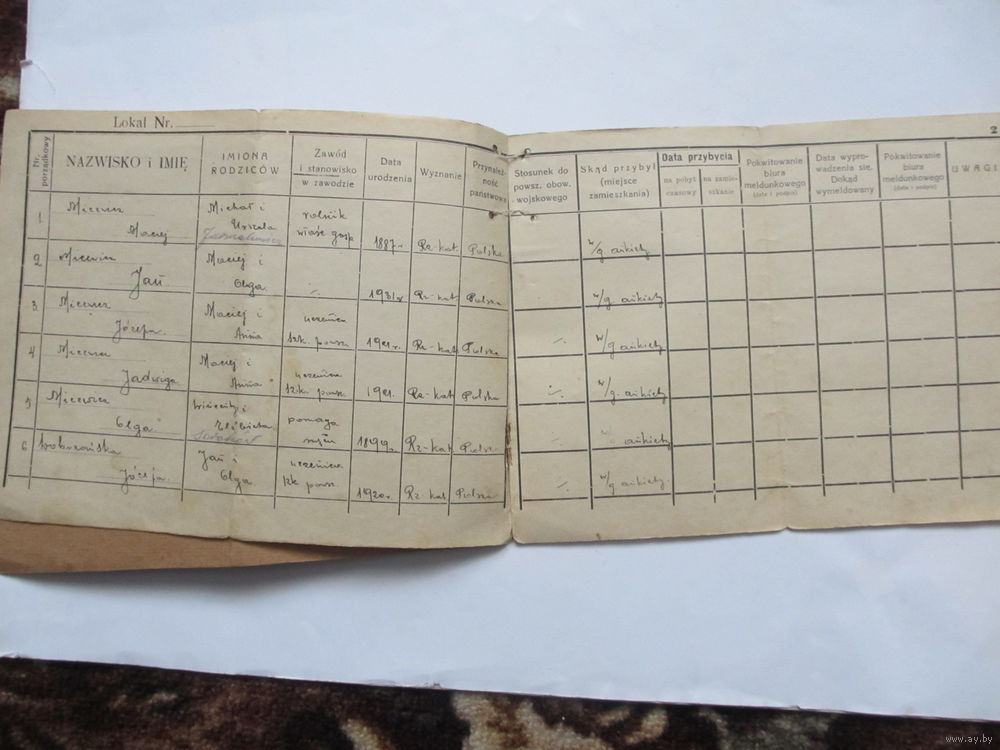 Lokal Nr.
2
Nr. porządkowy
NAZWISKO i IMIĘ
IMIONA RODZICÓW
Zawód i stanowisko w zawodzie
Data urodzenia
Wyznanie
Przynależność państwowa
Stosunek do powsz. obow. wojskowego
Skąd przybył (miejsce zamieszkania)
Data przybycia
na pobyt czasowy
na zamieszkanie
Pokwitowanie biura meldunkowego (data i podpis)
Data wyprowadzenia się. Dokąd wymeldowany
Pokwitowanie biura meldunkowego (data i podpis)
UWAGI
1 Maciej Michał i Urszula rolnik 1887 r. Rz-kat. Polska w/g ankiety
2 Jan Maciej i Olga 1931 r. Rz-kat. Polska w/g ankiety
3 Józefa Maciej i Anna uczenica szk. powsz. Rz-kat. Polska w/g ankiety
4 Jadwiga Maciej i Anna uczenica szk. powsz. Rz-kat. Polska w/g ankiety
5 Olga i Elżbieta pomaga 1899 r. Rz-kat. Polska ankiety
6 Józefa Jan i Olga uczenica szk. powsz. 1920 r. Rz-kat. Polska w/g ankiety
www.ay.by